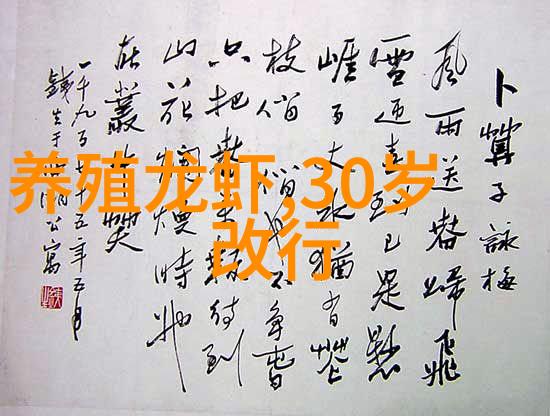 养殖龙虾,30岁
改行
卜算子詠梅
風雨送春歸飛
雪迎春到已是懸
崖百丈冰猶有花
枝俏俏也不争春
只把春來報待到
山花爛熳時她
在叢中笑
一千九百七十五年五月
于湖公寓